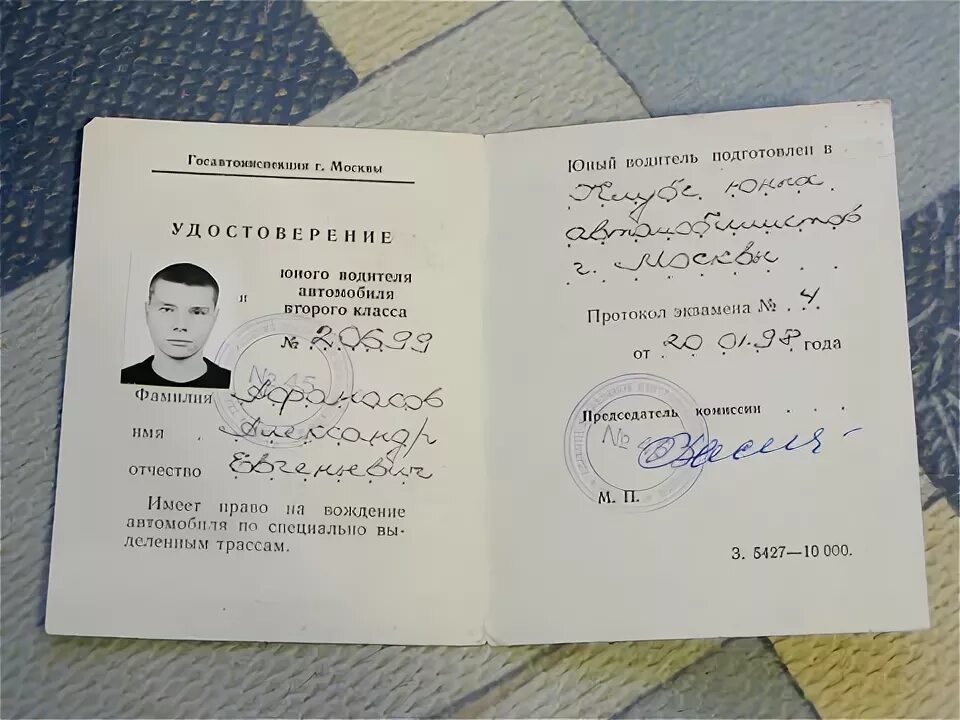 Госавтоинспекция г. Москвы
УДОСТОВЕРЕНИЕ
юного водителя
автомобиля
второго класса
№ 20699
№ 45
Фамилия Афанасов
имя . Александр
отчество Евгеньевич
Имеет право на вождение
автомобиля по специально вы-
деленным трассам.
Юный водитель подготовлен в
Клубе юных
автомобилистов
г. Москвы
Протокол экзамена № 4
от 20 01.98 года
Председатель комиссии . . .
№
М. П.
З. 5427—10 000.